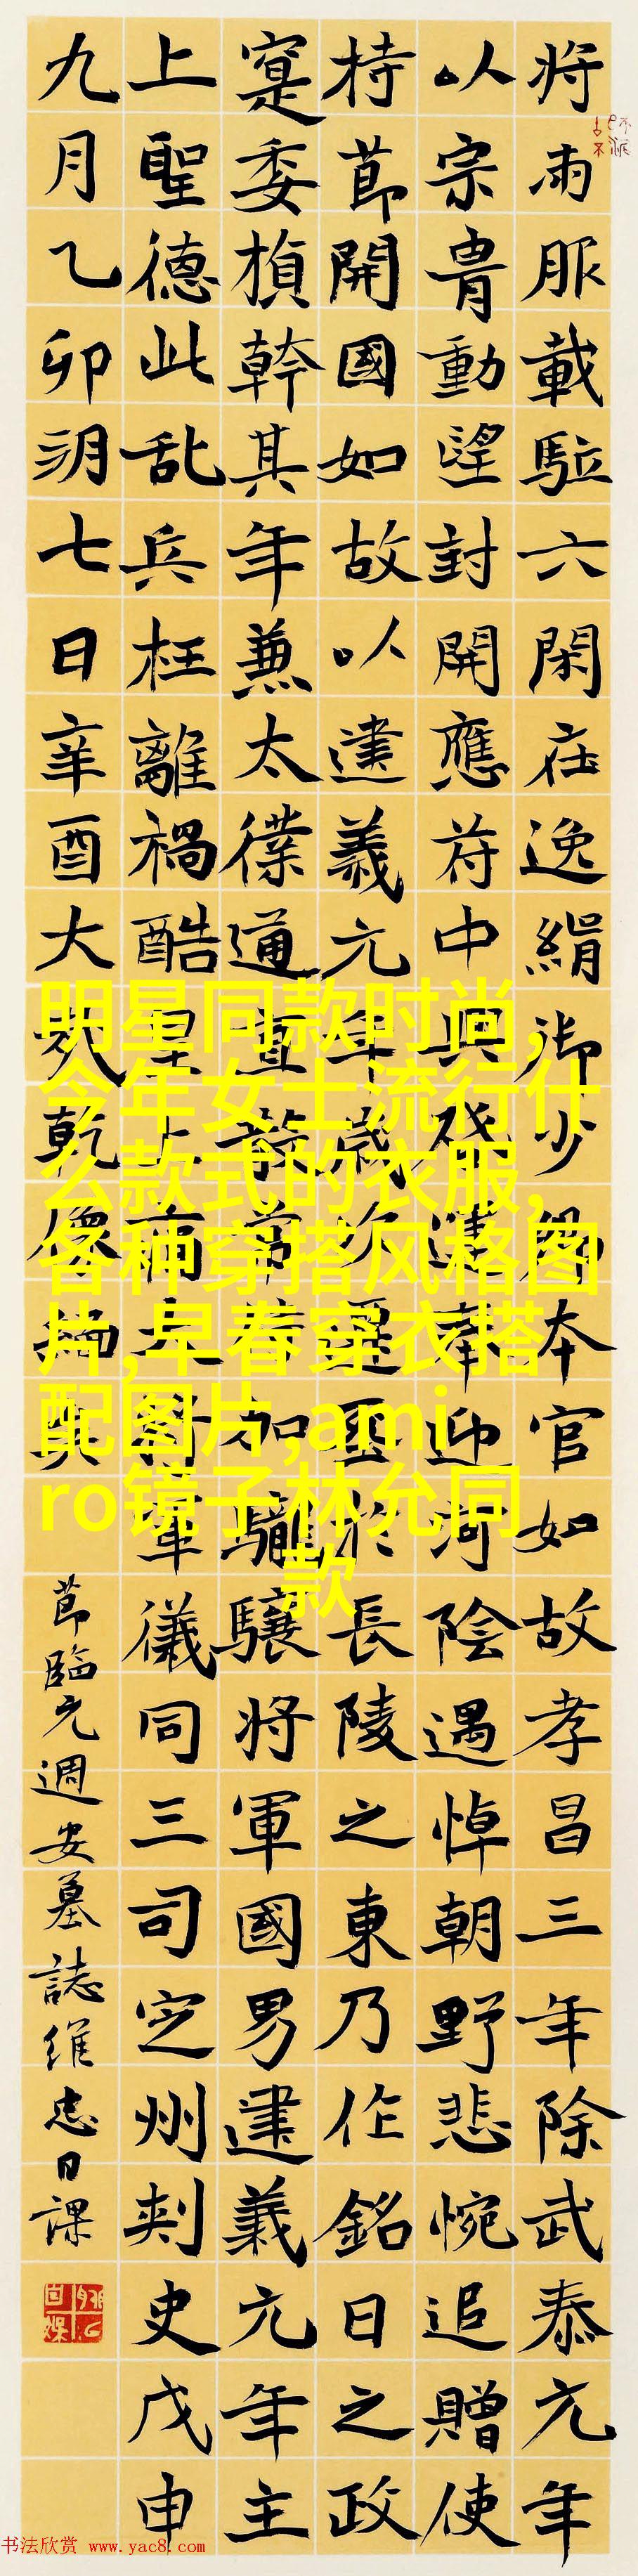 将雨服载駈六閑在逸绢御少 本官如故孝昌三年除武泰元年
以宗胄動望封開應苻中興 運奉迎河陰遇悼朝野悲惋追贈使
持節開國如故以建義元年歲次 窆於長陵之東乃作銘曰之政
寔委楨幹其年兼太僕通直散常 加驤驤将軍國男建義元年主
上聖德此乱兵枉離禍酷 軍儀同三司定州刺史戊申
九月乙卯朔七日辛酉大 乾
節臨元週安墓誌維忠日課
明星同款时尚,
今年女士流行什
么款式的衣服,
各种穿搭风格图
片,早春穿衣搭
配图片,ami
ro镜子林允同
款
书法欣赏 www.yac8.com